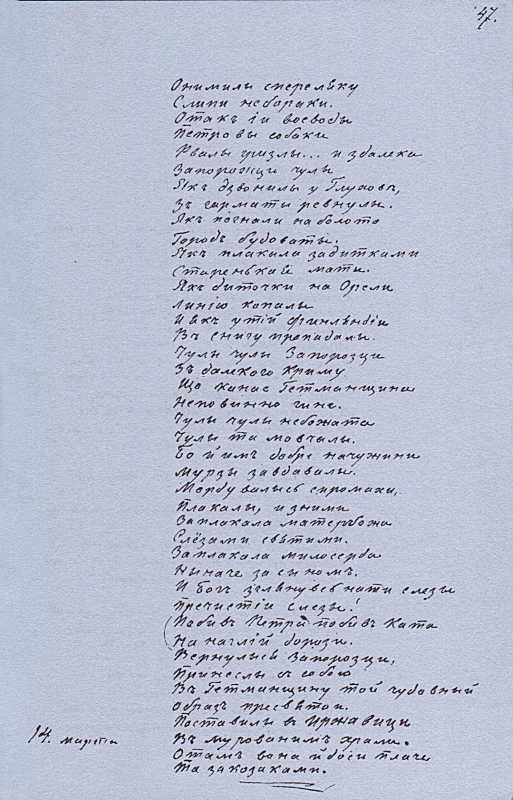 47.
Онимилы спереляку
Слипи небораки.
Отакъ іи воеводы
Петровы собаки
Рвалы гризлы... и здалека
Запорожци чулы
Якъ дзвонилы у Глухові,
Зъ гарматы ревнулы.
Якъ погнали на болото
Городъ будоваты.
Якъ плакала задитками
Старенькая маты.
Якъ диточки на Орели
Линію копалы
И якъ у тій Финляндіи
Въ снигу пропадалы.
Чулы чулы Запорозци
Зъ далекого Криму
Що конае Гетманщина
Неповинно гине.
Чулы чулы небожата
Чулы та мовчалы.
Бо й имъ добре начужини
Мурзы завдавалы.
Мордувалысь сиромахи,
Плакалы, изними
Заплакала матерьбожа
Слёзами святими.
Заплакала милосерда
Ныначе засыномъ.
И богъ зглянувсь нати слезы
Пречистіи слезы!
Побивъ Петра побивъ ката
На наглій дорози.
Вернулысь Запорозци,
Принеслы съ собою
Въ Гетманщину той чудовный
Образъ пресвятои.
Поставилы в Иржавици
Въ мурованимъ храми.
Отамъ вона й доси плаче
Та закозаками.
14. марта